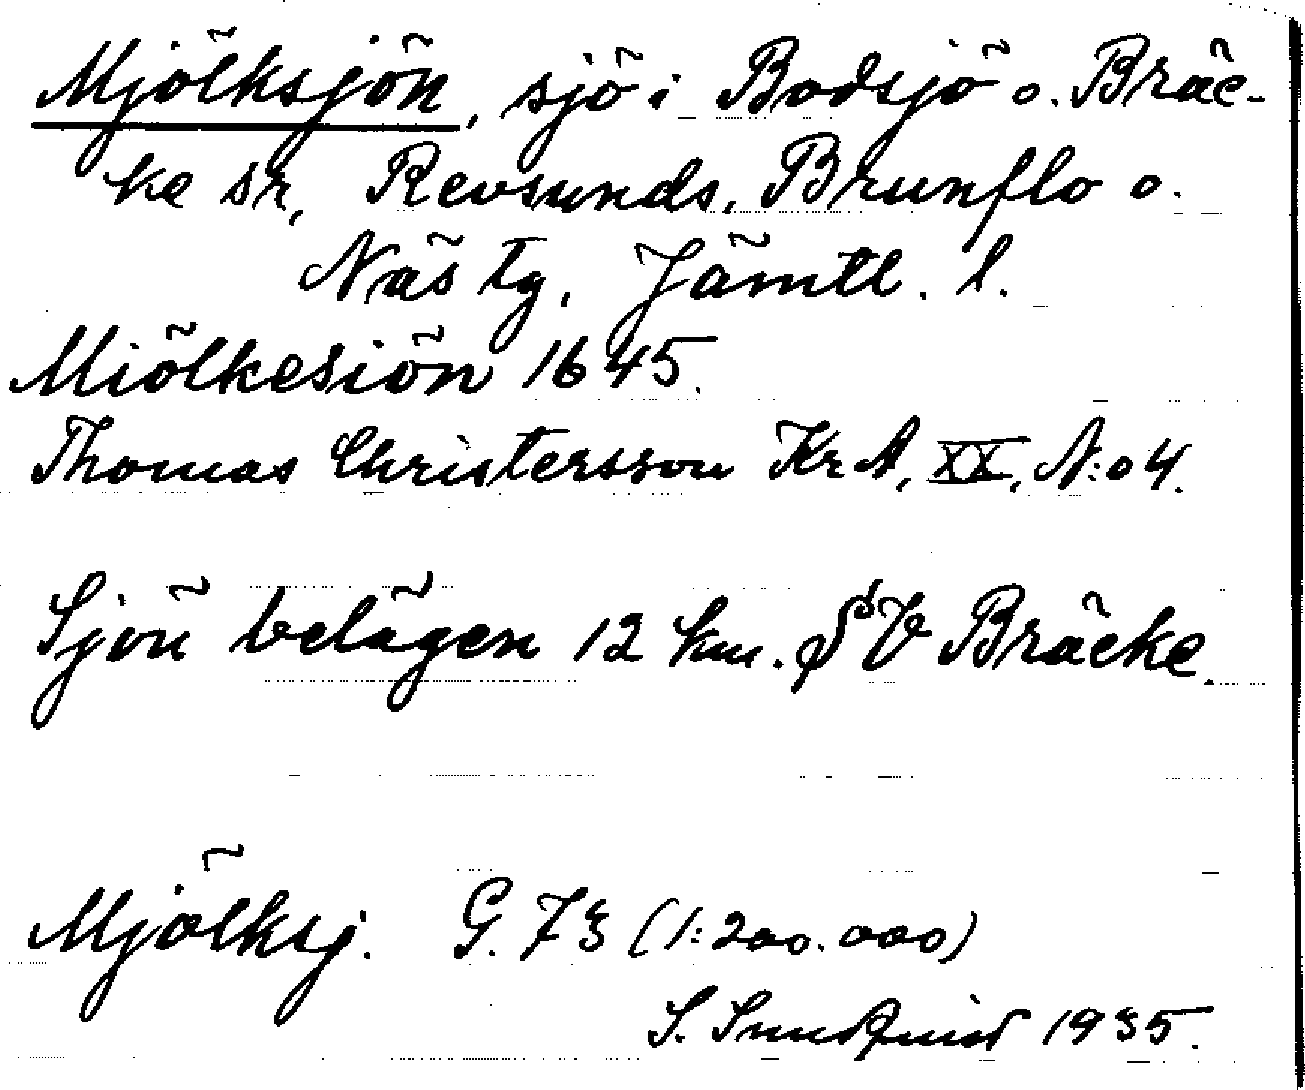 Mjölksjön, sjö i Bodsjö o. Bräc-
ke sr, Revsunds, Brunflo o.
Näs tg, Jämtl. l.
Miölkesiön 1645.
Thomas Christersson Kr A, XX, N:o 4.
Sjön belägen 12 km. SV Bräcke.
Mjölksj. G. 73 (1:200.000)
S. Sundquist 1935.